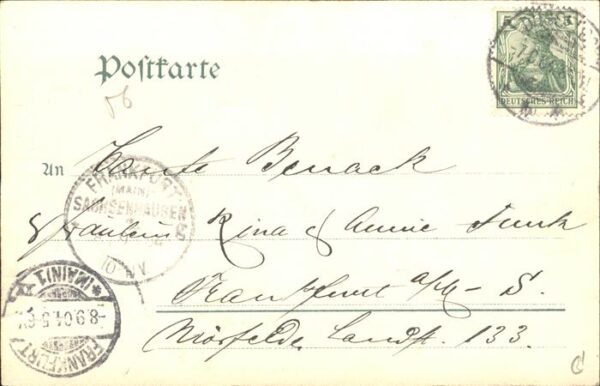 Postkarte
5 5
DEUTSCHES REICH
An Tante
Fräulein Rina & Annie Funk
Frankfurt a/M - S.
Mörfelder Landstr. 133.
FRANKFURT
(MAIN)
SACHSENHAUSEN
FRANKFURT
(MAIN) 1